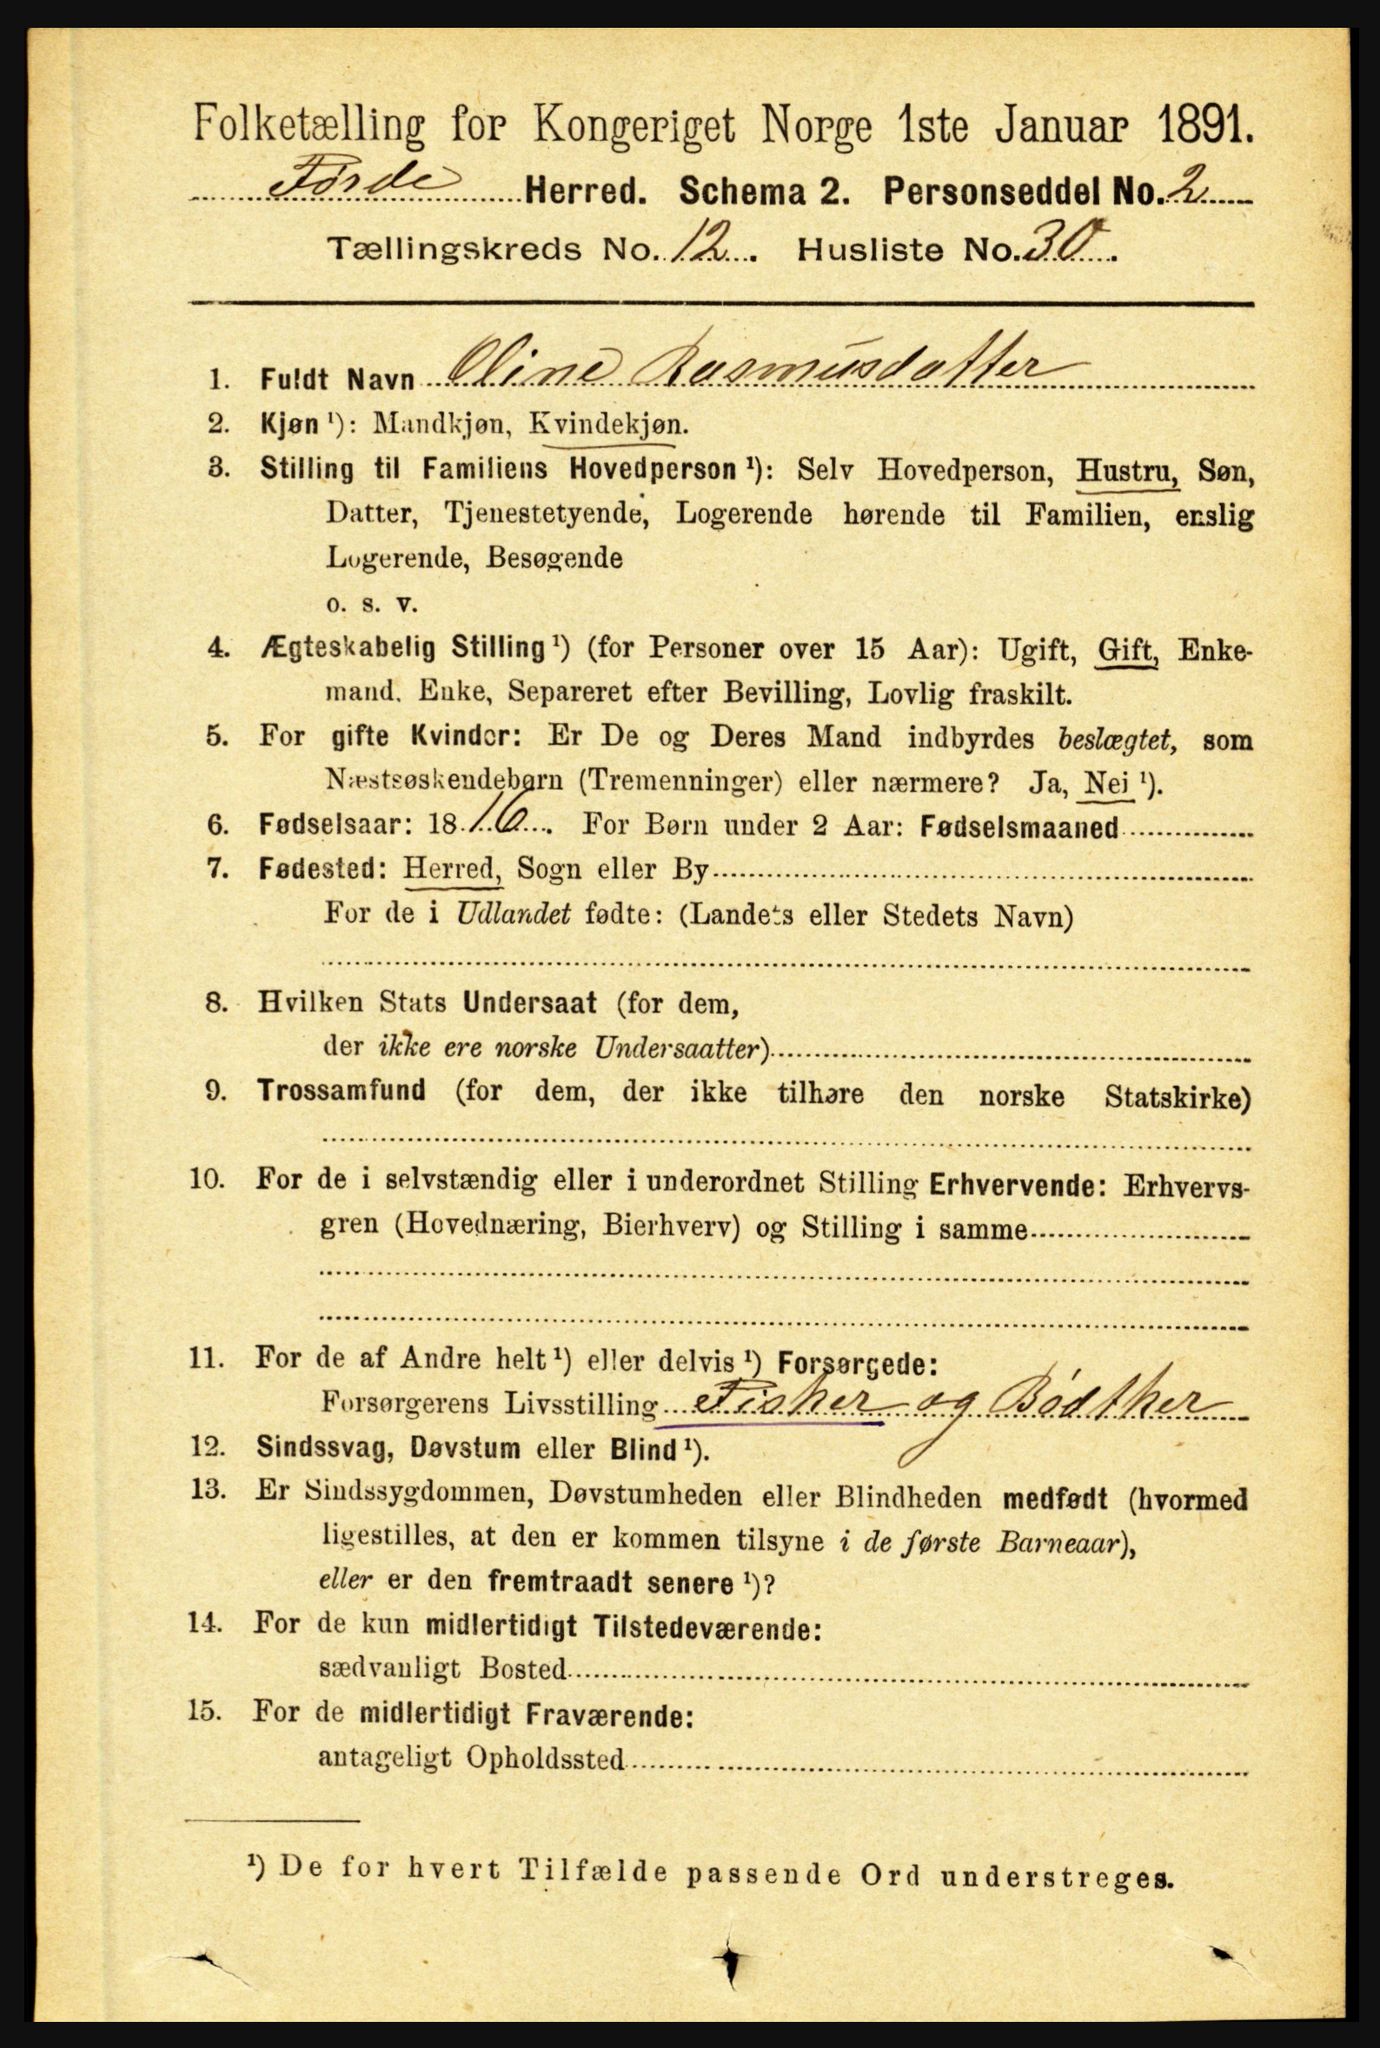 Folketælling for Kongeriget Norge 1ste Januar 1891.
Førde Herred. Schema 2. Personseddel No. 2
Tællingskreds No. 12. Husliste No. 30.
1. Fuldt Navn Oline Rasmusdatter
2. Kjøn ¹): Mandkjøn, Kvindekjøn.
3. Stilling til Familiens Hovedperson ¹): Selv Hovedperson, Hustru, Søn,
Datter, Tjenestetyende, Logerende hørende til Familien, enslig
Logerende, Besøgende
o. s. v.
4. Ægteskabelig Stilling ¹) (for Personer over 15 Aar): Ugift, Gift, Enke-
mand, Enke, Separeret efter Bevilling, Lovlig fraskilt.
5. For gifte Kvinder: Er De og Deres Mand indbyrdes beslægtet, som
Næstsøskendebørn (Tremenninger) eller nærmere? Ja, Nei ¹).
6. Fødselsaar: 1816. For Børn under 2 Aar: Fødselsmaaned
7. Fødested: Herred, Sogn eller By
For de i Udlandet fødte: (Landets eller Stedets Navn)
8. Hvilken Stats Undersaat (for dem,
der ikke ere norske Undersaatter)
9. Trossamfund (for dem, der ikke tilhøre den norske Statskirke)
10. For de i selvstændig eller i underordnet Stilling Erhvervende: Erhvervs-
gren (Hovednæring, Bierhverv) og Stilling i samme
11. For de af Andre helt ¹) eller delvis ¹) Forsørgede:
Forsørgerens Livsstilling Fisker og Bödther
12. Sindssvag, Døvstum eller Blind ¹).
13. Er Sindssygdommen, Døvstumheden eller Blindheden medfødt (hvormed
ligestilles, at den er kommen tilsyne i de første Barneaar),
eller er den fremtraadt senere ¹)?
14. For de kun midlertidigt Tilstedeværende:
sædvanligt Bosted
15. For de midlertidigt Fraværende:
antageligt Opholdssted
¹) De for hvert Tilfælde passende Ord understreges.